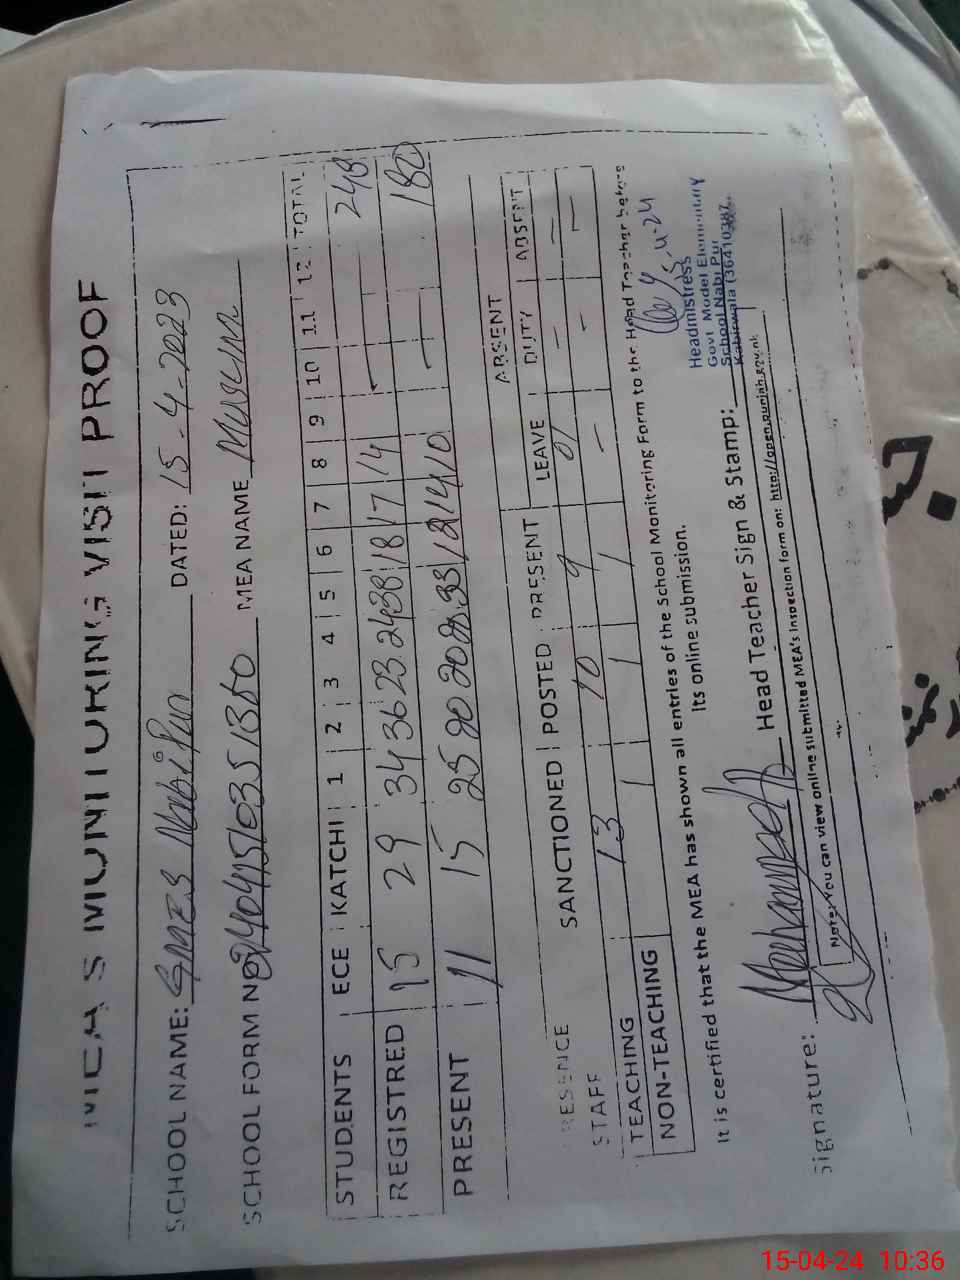 MEA'S MONITORING VISIT PROOF
SCHOOL NAME: GMES Nabi Pur DATED: 15-4-2023
SCHOOL FORM NO MEA NAME
STUDENTS ECE KATCHI 1 2 3 4 5 6 7 8 9 10 11 12 TOTAL
REGISTRED 15 29 34 36 23 24 38 18 17 14 248
PRESENT 11 15 25 20 20 33 14 10 180
ABSENT
PRESENCE SANCTIONED POSTED PRESENT LEAVE DUTY ABSENT
STAFF
TEACHING 13 10 9 01 - -
NON-TEACHING 1 1 1 - - -
It is certified that the MEA has shown all entries of the School Monitoring Form to the Head Teacher before
Its online submission.
Headmistress
Govt Model Elementary
School Nabi Pur
Kabirwala (36410387)
Signature: Head Teacher Sign & Stamp:
Note: You can view online submitted MEA's Inspection form on: http://open.punjab.gov.pk
15-04-24 10:36